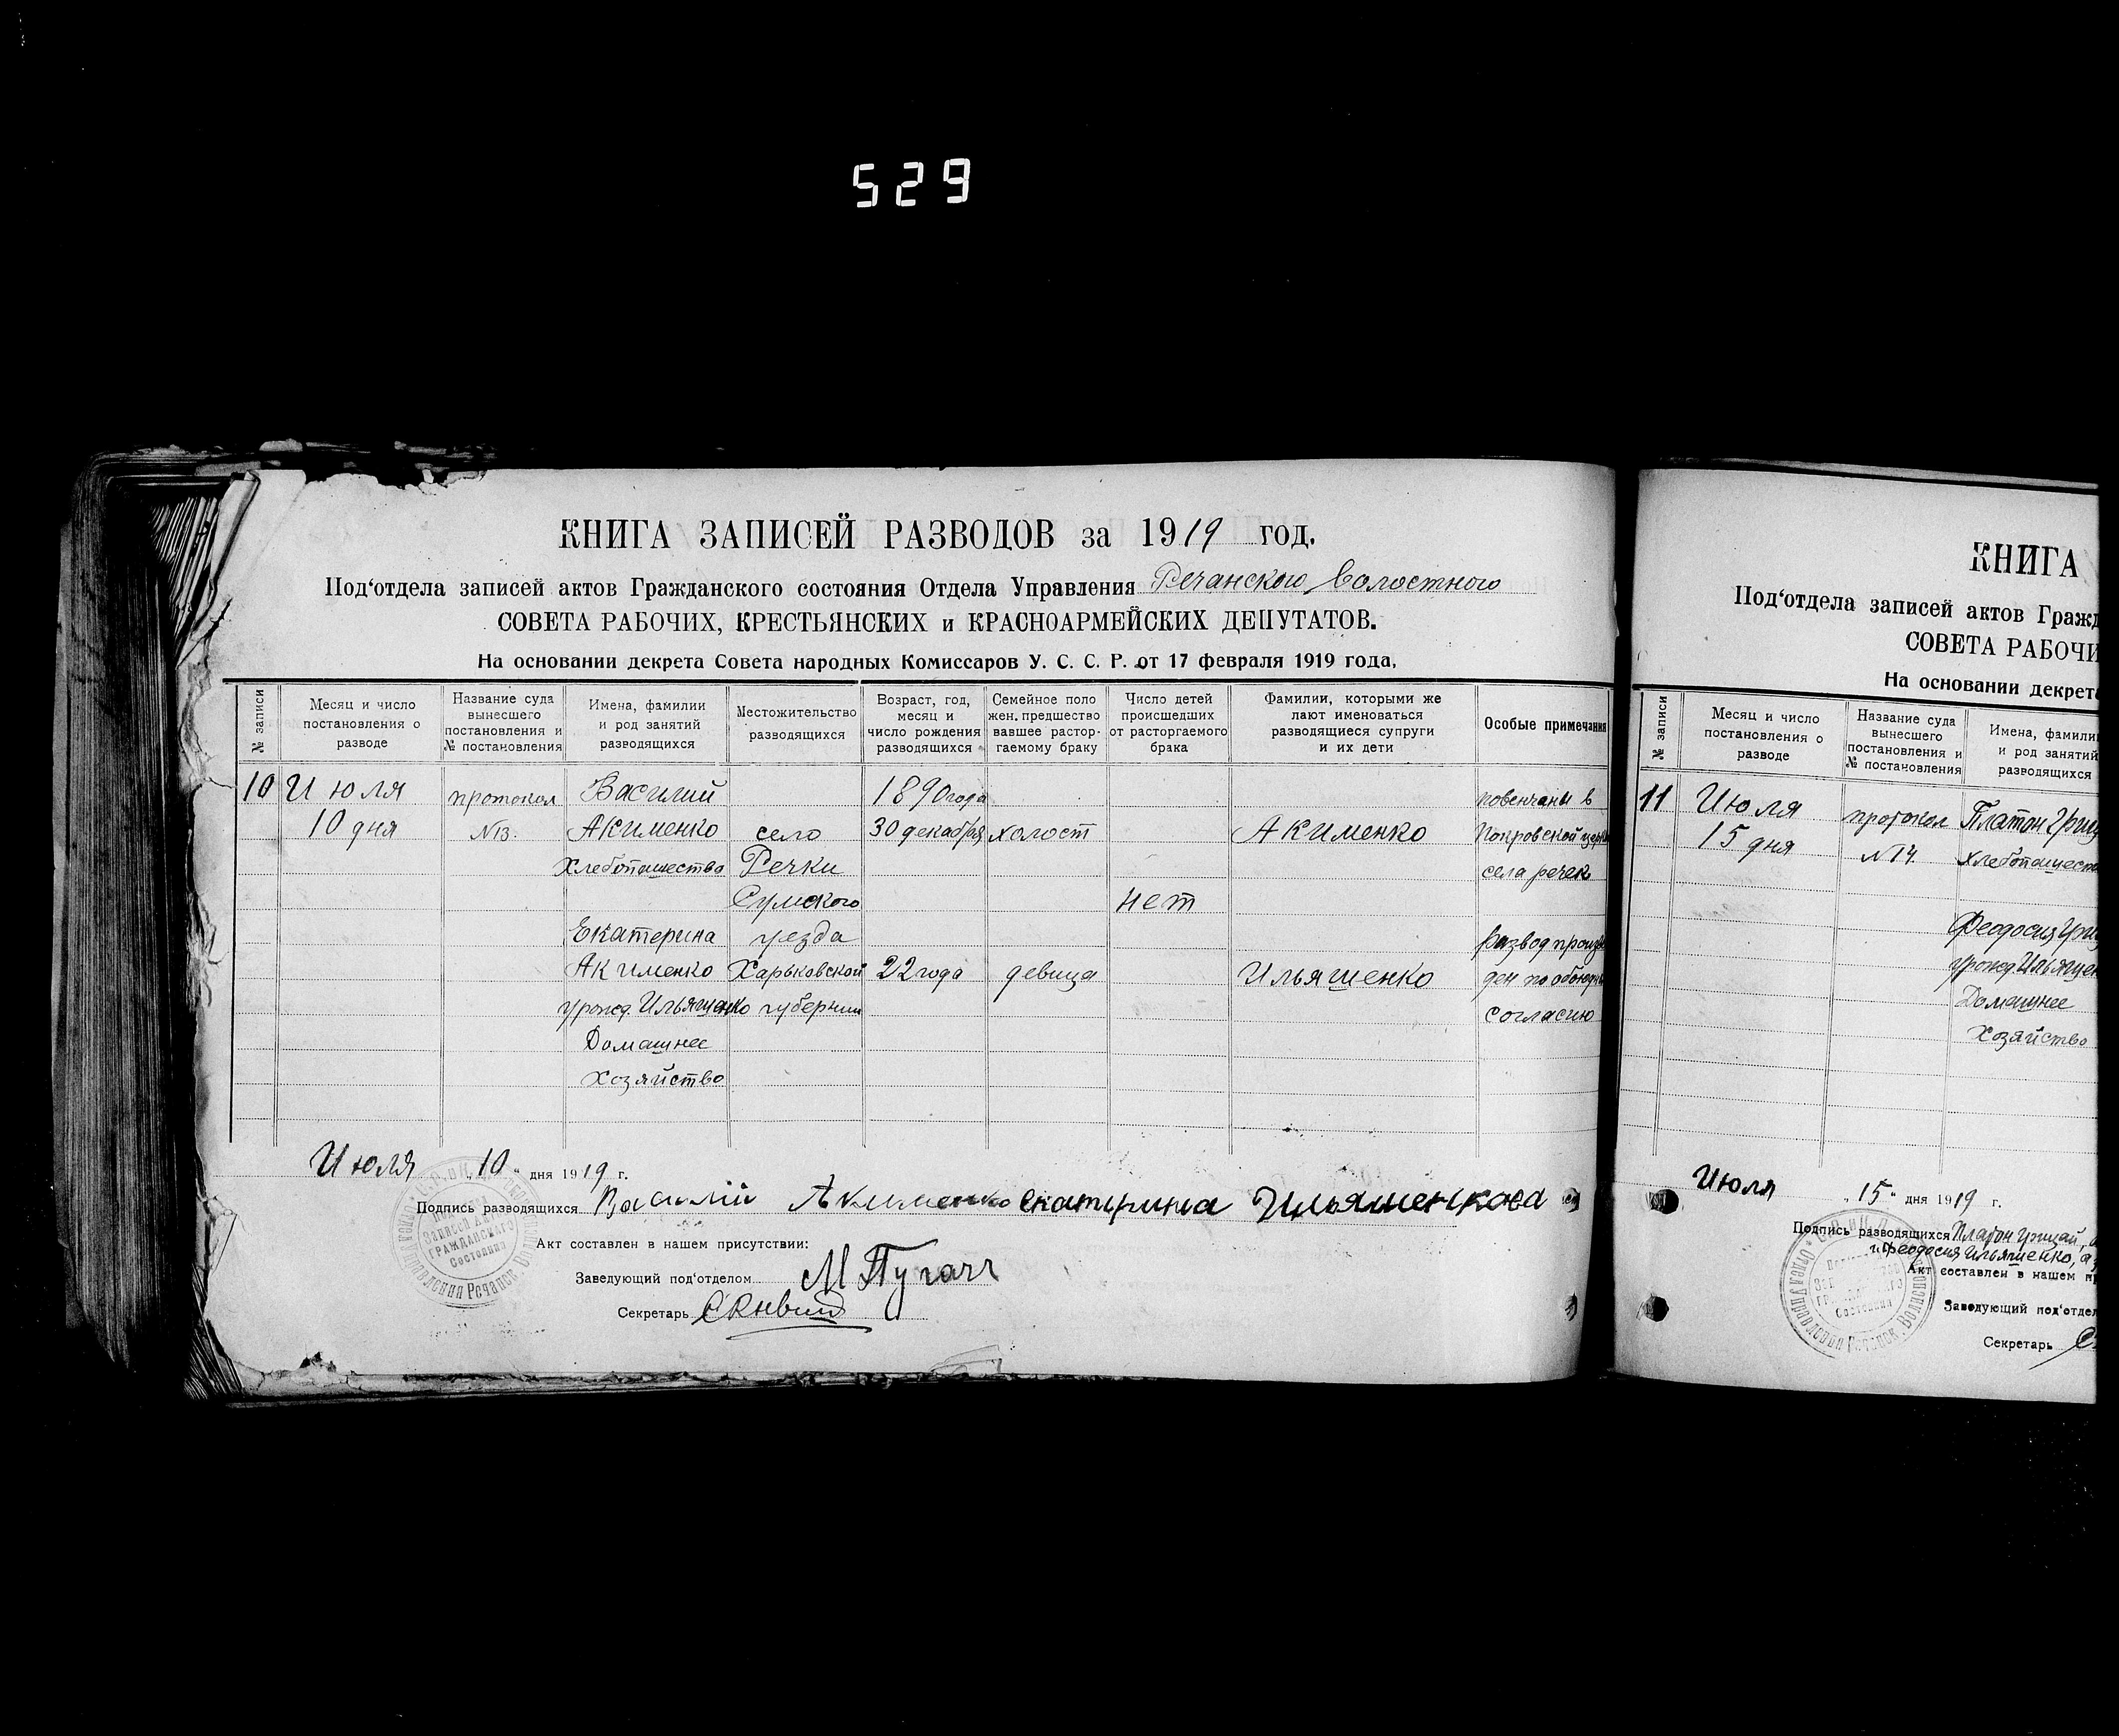 529
КНИГА ЗАПИСЕЙ РАЗВОДОВ за 1919 год.
Под‘отдела записей актов Гражданского состояния Отдела Управления Речанского Волостного
СОВЕТА РАБОЧИХ, КРЕСТЬЯНСКИХ и КРАСНОАРМЕЙСКИХ ДЕПУТАТОВ.
На основании декрета Совета народных Комиссаров У. С. С. Р. от 17 февраля 1919 года,
№ записи
Месяц и число
постановления о
разводе
Название суда
вынесшего
постановления и
№ постановления
Имена, фамилии
и род занятий
разводящихся
Местожительство
разводящихся
Возраст, год,
месяц и
число рождения
разводящихся
Семейное поло
жен. предшество
вавшее растор-
гаемому браку
Число детей
происшедших
от расторгаемого
брака
Фамилии, которыми же
лают именоваться
разводящиеся супруги
и их дети
Особые примечания
10
Июля
10 дня
протокол
№13.
Василий
Акименко
Хлебопашество
Екатерина
Акименко
урожд. Ильяшенко
Домашнее
Хозяйство
село
Речки
Сумского
уезда
Харьковской
губернии
1890 года
30 декабря
22 года
холост
девица
нет
Акименко
Ильяшенко
повенчаны в
Покровской
села речек
Развод произве
ден по обоюдн
согласию
Июля „10“ дня 1919 г.
Подпись разводящихся Василий Акименко Екатерина Ильяшенкова
Акт составлен в нашем присутствии:
Заведующий под‘отделом М Пугач
Секретарь
КНИГА
Под‘отдела записей актов Гражд
СОВЕТА РАБОЧИ
На основании декрета
№ записи
Месяц и число
постановления о
разводе
Название суда
вынесшего
постановления и
№ постановления
Имена, фамилии
и род занятий
разводящихся
11
Июля
15 дня
протокол
№14
Платон Гриц
Хлебопашество
Феодосия Гриц
урожд. Ильяшен
Домашнее
Хозяйство
Июля „15“ дня 1919 г.
Подпись разводящихся Платон Грицай,
Феодосия Ильяшенко, а
Акт составлен в нашем п
Заведующий под‘отдел
Секретарь